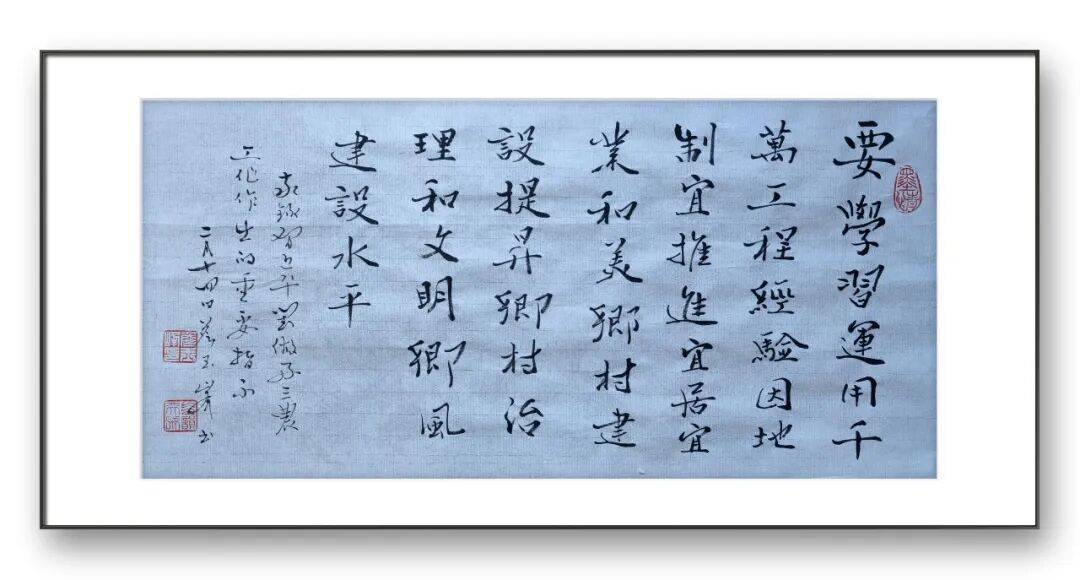 要學習運用千
萬工程經驗因地
制宜推進宜居宜
業和美鄉村建
設提昇鄉村治
理和文明鄉風
建設水平
錄習近平對做好三農
工作作出的重要指示
二月十四日